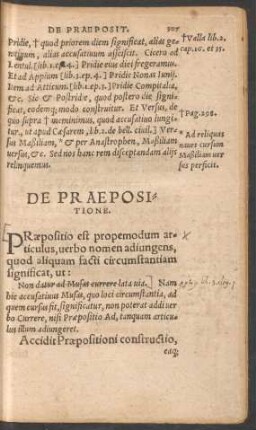 DE PRÆPOSIT.
Pridie, † quod priorem diem significat, alias ge-
nitiuum, alias accusatiuum asciscit. Cicero ad
Lentul. [lib.1.ep.4.] Pridie eius diei fregeramus.
Et ad Appium [lib.3.ep.4.] Pridie Nonas Iunij.
Item ad Atticum. [lib.1.ep.3.] Pridie Compitalia,
&c. Sic & Postridie, quod postero die signi-
ficat, eodemq; modo construitur. Et Versus, de
quo supra † meminimus, quod accusatiuo iungi-
tur, vt apud Cæsarem, lib.1.de bell. ciuil.] Ver-
sus Massiliam, * & per Anastrophen, Massiliam
versus, &c. Sed nos hanc rem disceptandam alijs
relinquemus.
† Valla lib.2.
cap.10. et 31.
† Pag.298.
* Ad reliquas
naues cursum
Massiliam ver
sus perficit.
DE PRÆPOSI-
TIONE.
PRæpositio est propemodum ar-
ticulus, verbo nomen adiungens,
quod aliquam facti circumstantiam
significat, vt:
Non datur ad Musas currere lata via.] Nam
hic accusatiuus Musas, quo loci circumstantia, ad
quem cursus fit, significatur, non poterat addi ver-
bo Currere, nisi Præpositio Ad, tanquam articu-
lus illum adiungeret.
Accidit Præpositioni constructio,
eaq;